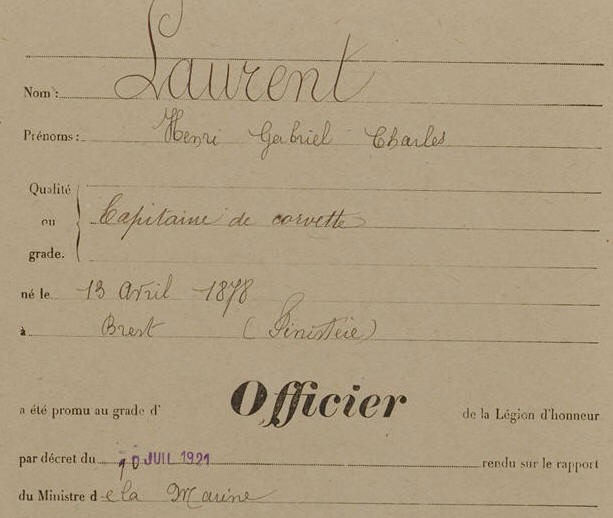 Nom : Laurent
Prénoms : Henri Gabriel Charles
Qualité
ou Capitaine de corvette
grade.
né le 13 avril 1878
à Brest (Finistère)
a été promu au grade d' Officier de la Légion d'honneur
par décret du 10 JUIL 1921 rendu sur le rapport
du Ministre de la Marine